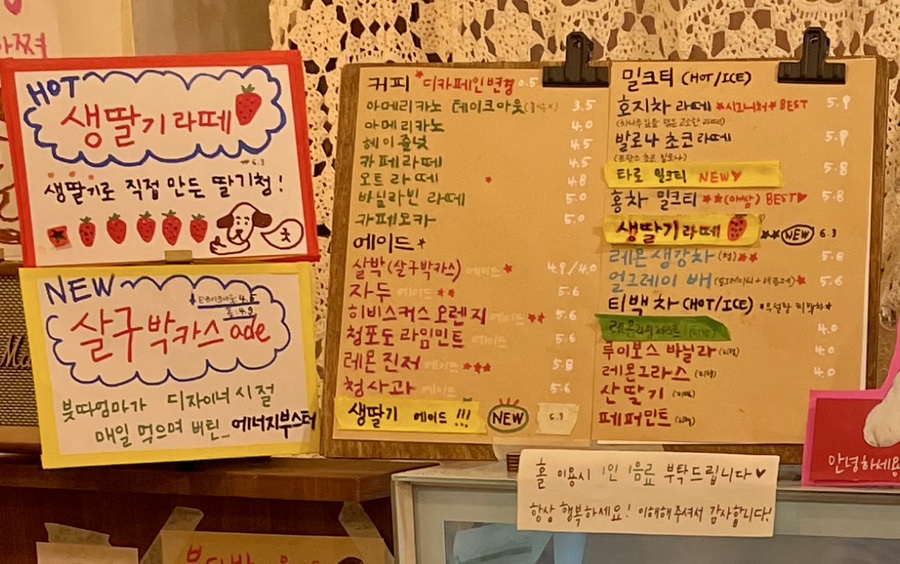 HOT
생딸기라떼
6.3
생딸기로 직접 만든 딸기청!
NEW
테이크아웃 4.5
홀 4.9
살구박카스 ade
붓따엄마가 디자이너 시절
매일 먹으며 버틴.. 에너지부스터
커피 *디카페인변경 0.5
아메리카노 테이크아웃 3.5
아메리카노 4.0
헤이즐넛 4.5
카페라떼 4.5
오트라떼 4.8
바닐라빈 라떼 5.0
카페모카 5.0
에이드*
살박(살구박카스) 에이드* 4.9/4.0
자두 에이드** 5.6
히비스커스 오렌지 에이드** 5.6
청포도 라임민트 에이드 5.6
레몬 진저 에이드*** 5.8
청사과 에이드 5.6
생딸기 에이드 !!! NEW 6.3
밀크티 (HOT/ICE)
호지차 라떼 *시그니처* BEST 5.9
발로나 초코라떼 5.9
(프랑스 초코 발로나)
타로 밀크티 NEW♥ 5.8
홍차 밀크티 **(아쌈) BEST♥ 5.8
생딸기라떼 ** NEW 6.3
레몬생강차 5.8
얼그레이 배 5.6
티백차 (HOT/ICE)
4.0
루이보스 바닐라 (티백) 4.0
레몬그라스 (티백) 4.0
산딸기 (티백)
페퍼민트 (티백)
홀 이용시 1인 1음료 부탁드립니다♥
항상 행복하세요! 이해해주셔서 감사합니다!
안녕하세요